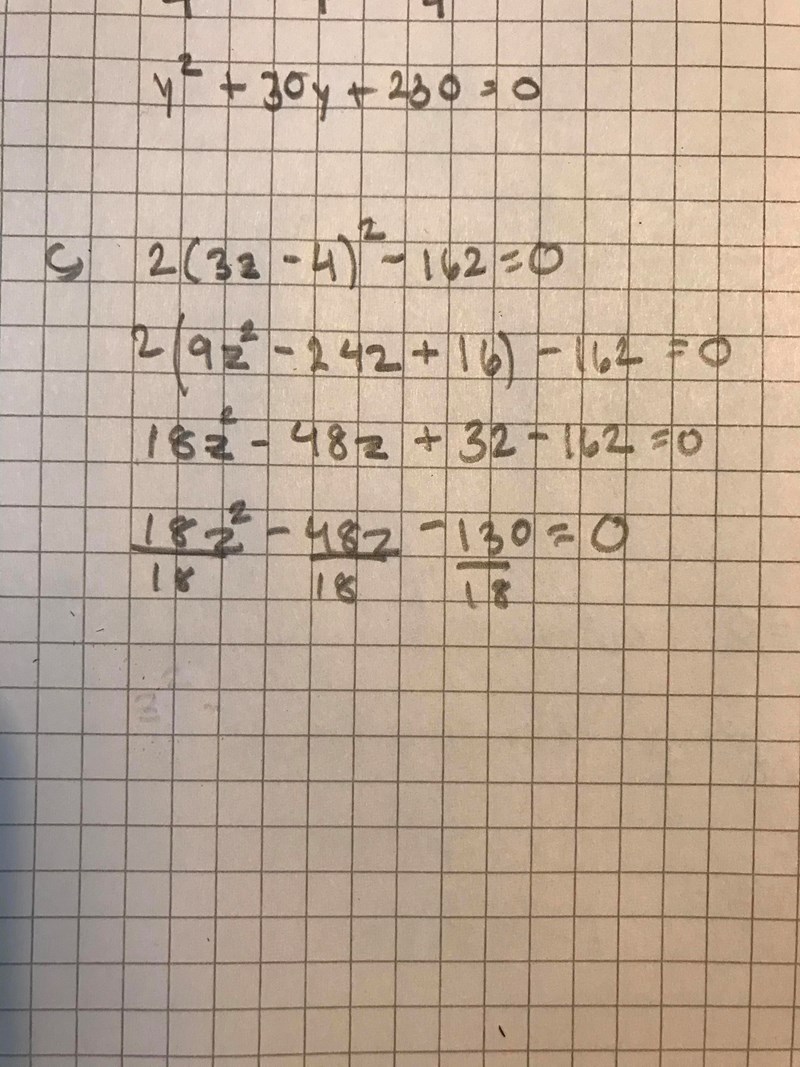 y² + 30y + 230 = 0
c) 2(3z - 4)² - 162 = 0
2(9z² - 24z + 16) - 162 = 0
18z² - 48z + 32 - 162 = 0
18z²/18 - 48z/18 - 130/18 = 0